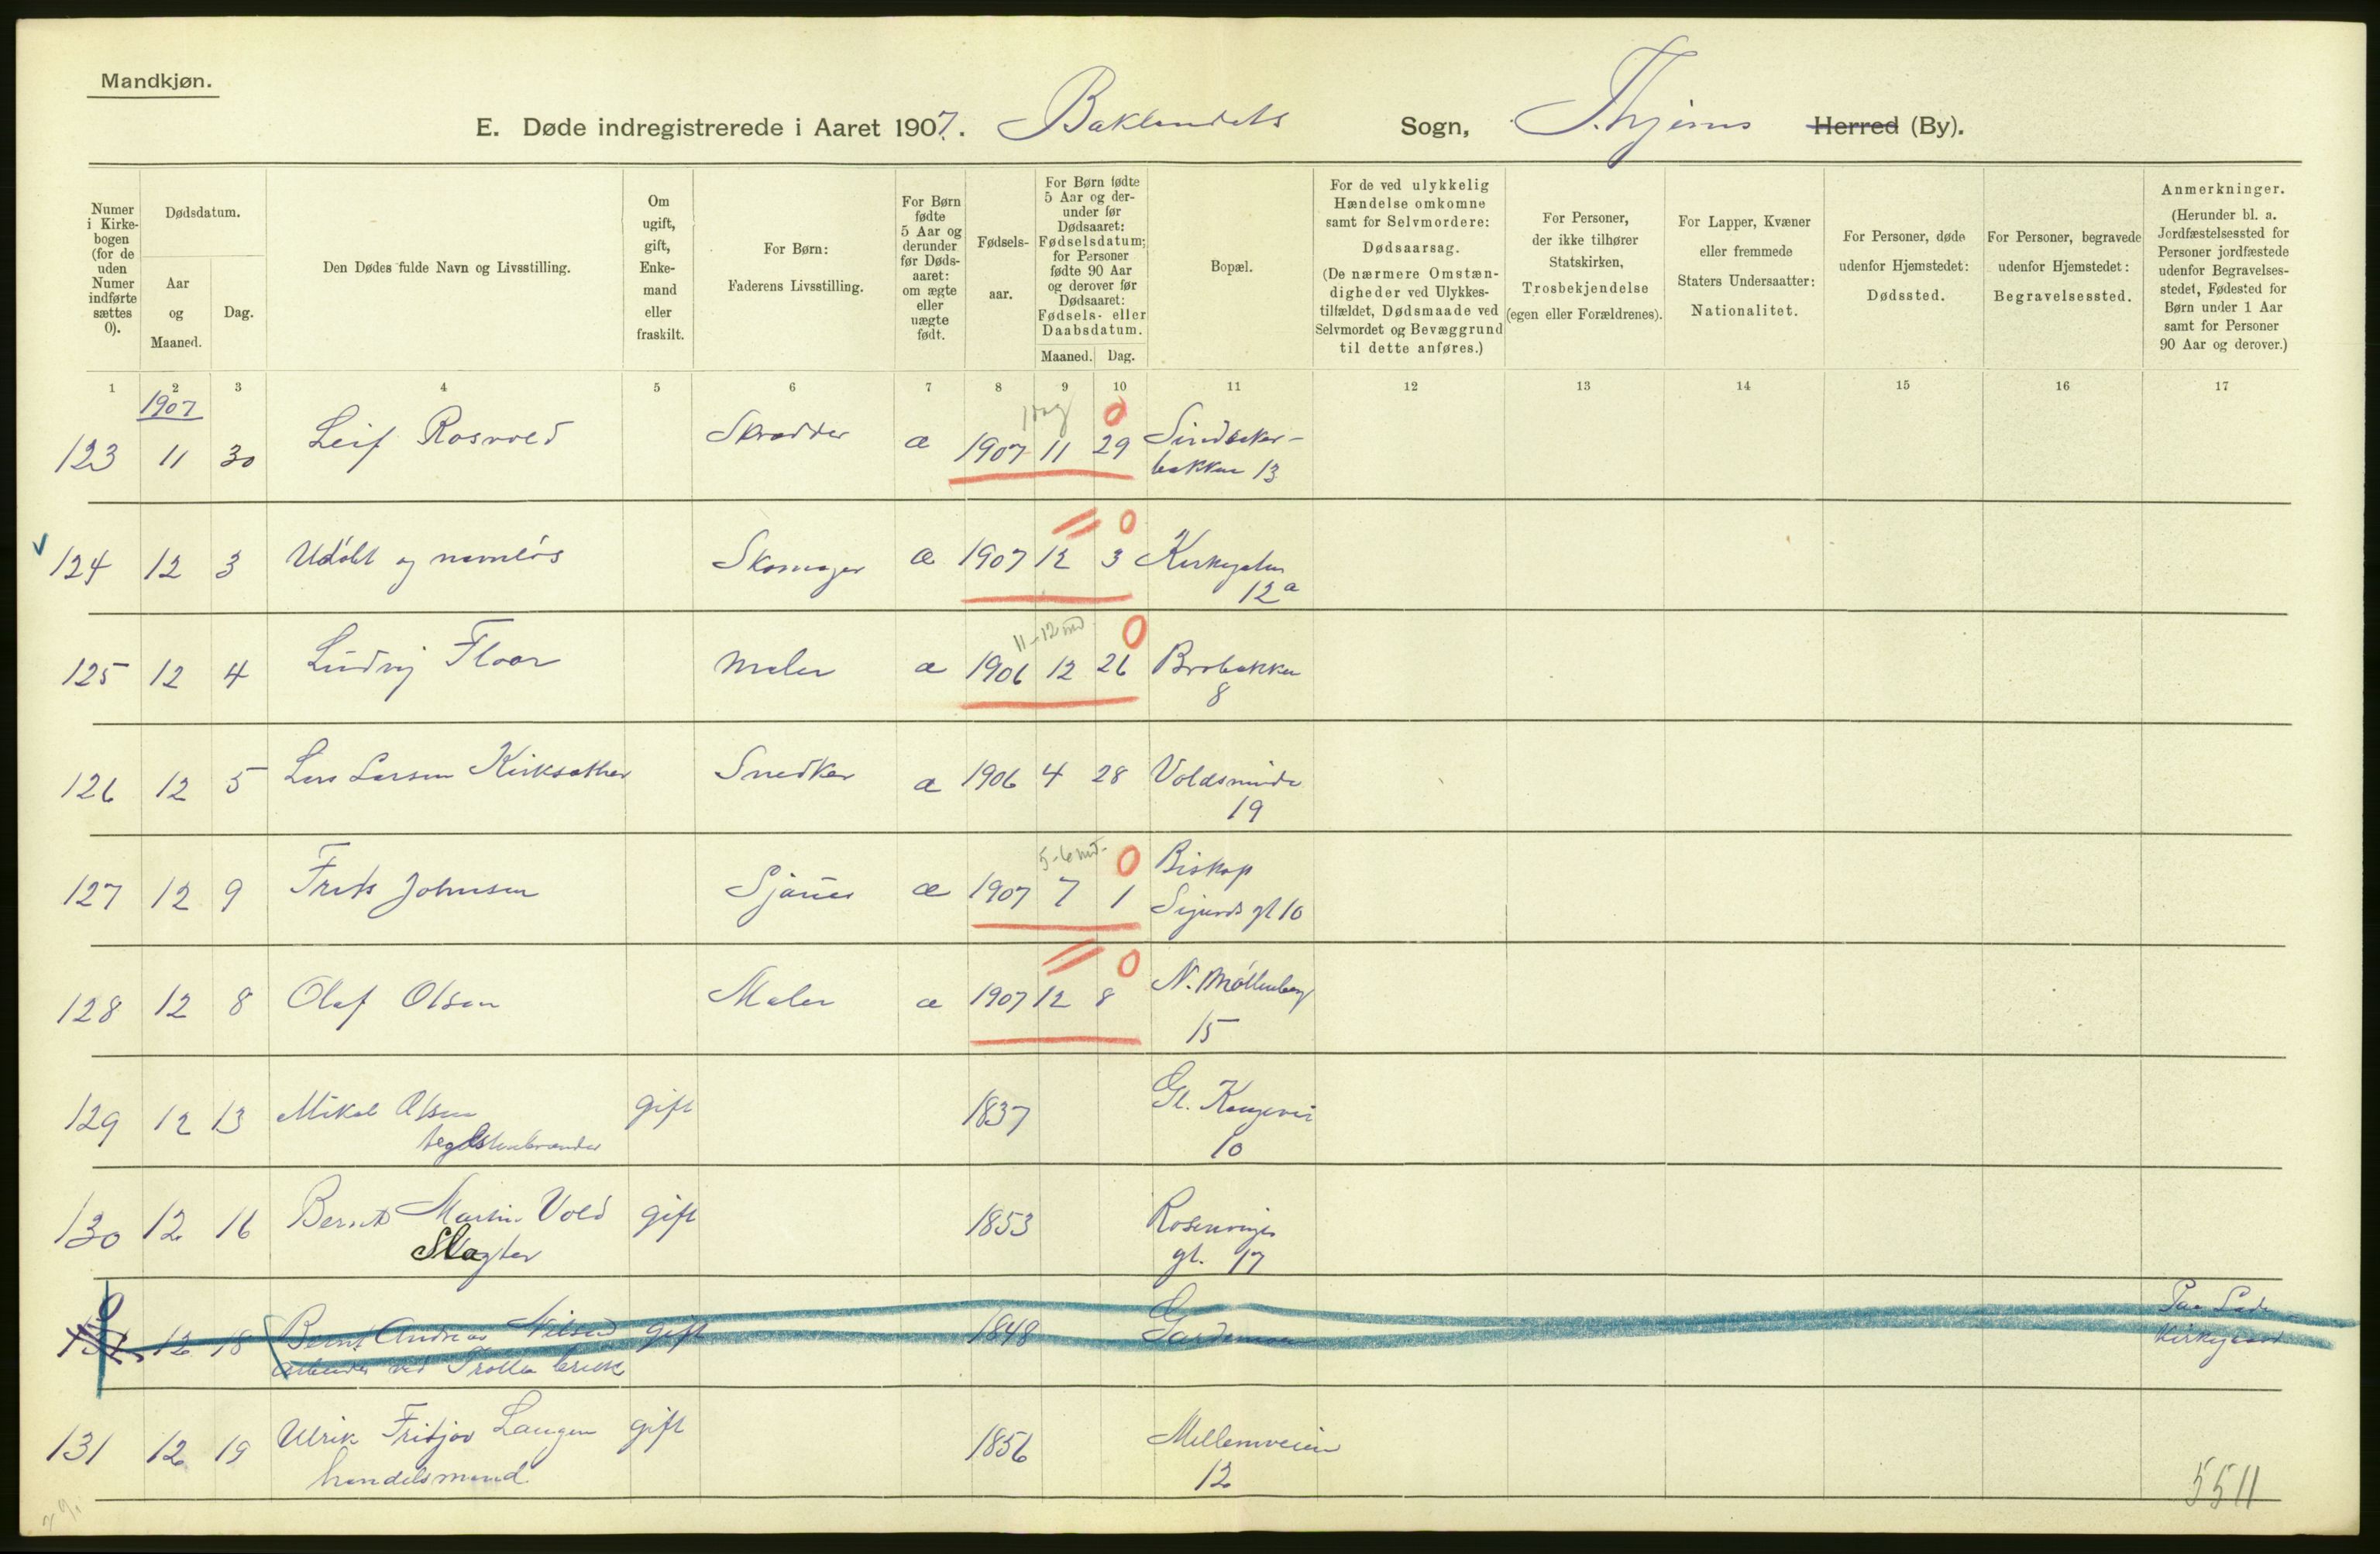 Mandkjøn.
E. Døde indregistrerede i Aaret 1907. Baklandets Sogn, Thjems Herred (By).
Numer i Kirke-bogen (for de uden Numer indførte sættes 0).
Dødsdatum.
Aar og Maaned.
Dag.
Den Dødes fulde Navn og Livsstilling.
Om ugift, gift, Enke-mand eller fraskilt.
For Børn: Faderens Livsstilling.
For Børn fødte 5 Aar og derunder før Døds-aaret: om ægte eller uægte født.
Fødsels-aar.
For Børn fødte 5 Aar og der-under før Dødsaaret: Fødselsdatum; for Personer fødte 90 Aar og derover før Dødsaaret: Fødsels- eller Daabsdatum.
Maaned. Dag.
Bopæl.
For de ved ulykkelig Hændelse omkomne samt for Selvmordere: Dødsaarsag. (De nærmere Omstæn-digheder ved Ulykkes-tilfældet, Dødsmaade ved Selvmordet og Bevæggrund til dette anføres.)
For Personer, der ikke tilhører Statskirken, Trosbekjendelse (egen eller Forældrenes).
For Lapper, Kvæner eller fremmede Staters Undersaatter: Nationalitet.
For Personer, døde udenfor Hjemstedet: Dødssted.
For Personer, begravede udenfor Hjemstedet: Begravelsessted.
Anmerkninger. (Herunder bl. a. Jordfæstelsessted for Personer jordfæstede udenfor Begravelses-stedet, Fødested for Børn under 1 Aar samt for Personer 90 Aar og derover.)
1 2 3 4 5 6 7 8 9 10 11 12 13 14 15 16 17
1907
1 dag 0
123 11 30 Leif Rosvold Skrædder æ 1907 11 29 Sindsaker-
bakken 13
0
124 12 3 Udöbt og navnlös Skomager æ 1907 12 3 Kirkegaten
12a
11-12 md 0
125 12 4 Ludvig Floor Maler æ 1906 12 26 Brobakken
8
126 12 5 Lars Larsen Kirksæther Snedker æ 1906 4 28 Voldsminde
19
5-6 md. 0
127 12 9 Frits Johnsen Sjauer æ 1907 7 1 Biskop
Sigurds gt 10
0
128 12 8 Olaf Olsen Maler æ 1907 12 8 N. Möllenberg
15
129 12 13 Mikal Olsen gift 1837 Gl. Kongevei
teglstenbrænder 10
130 12 16 Bernt Martin Vold gift 1853 Rosenvinges
Slagter gt. 17
0
131 12 18 Bernt Andreas Nilsen gift 1848 Paa Lade
arbeider ved Trolla bruk Kirkegaard
131 12 19 Ulrik Fritjov Langen gift 1856 Mellemveien
handelsmand. 12
5511